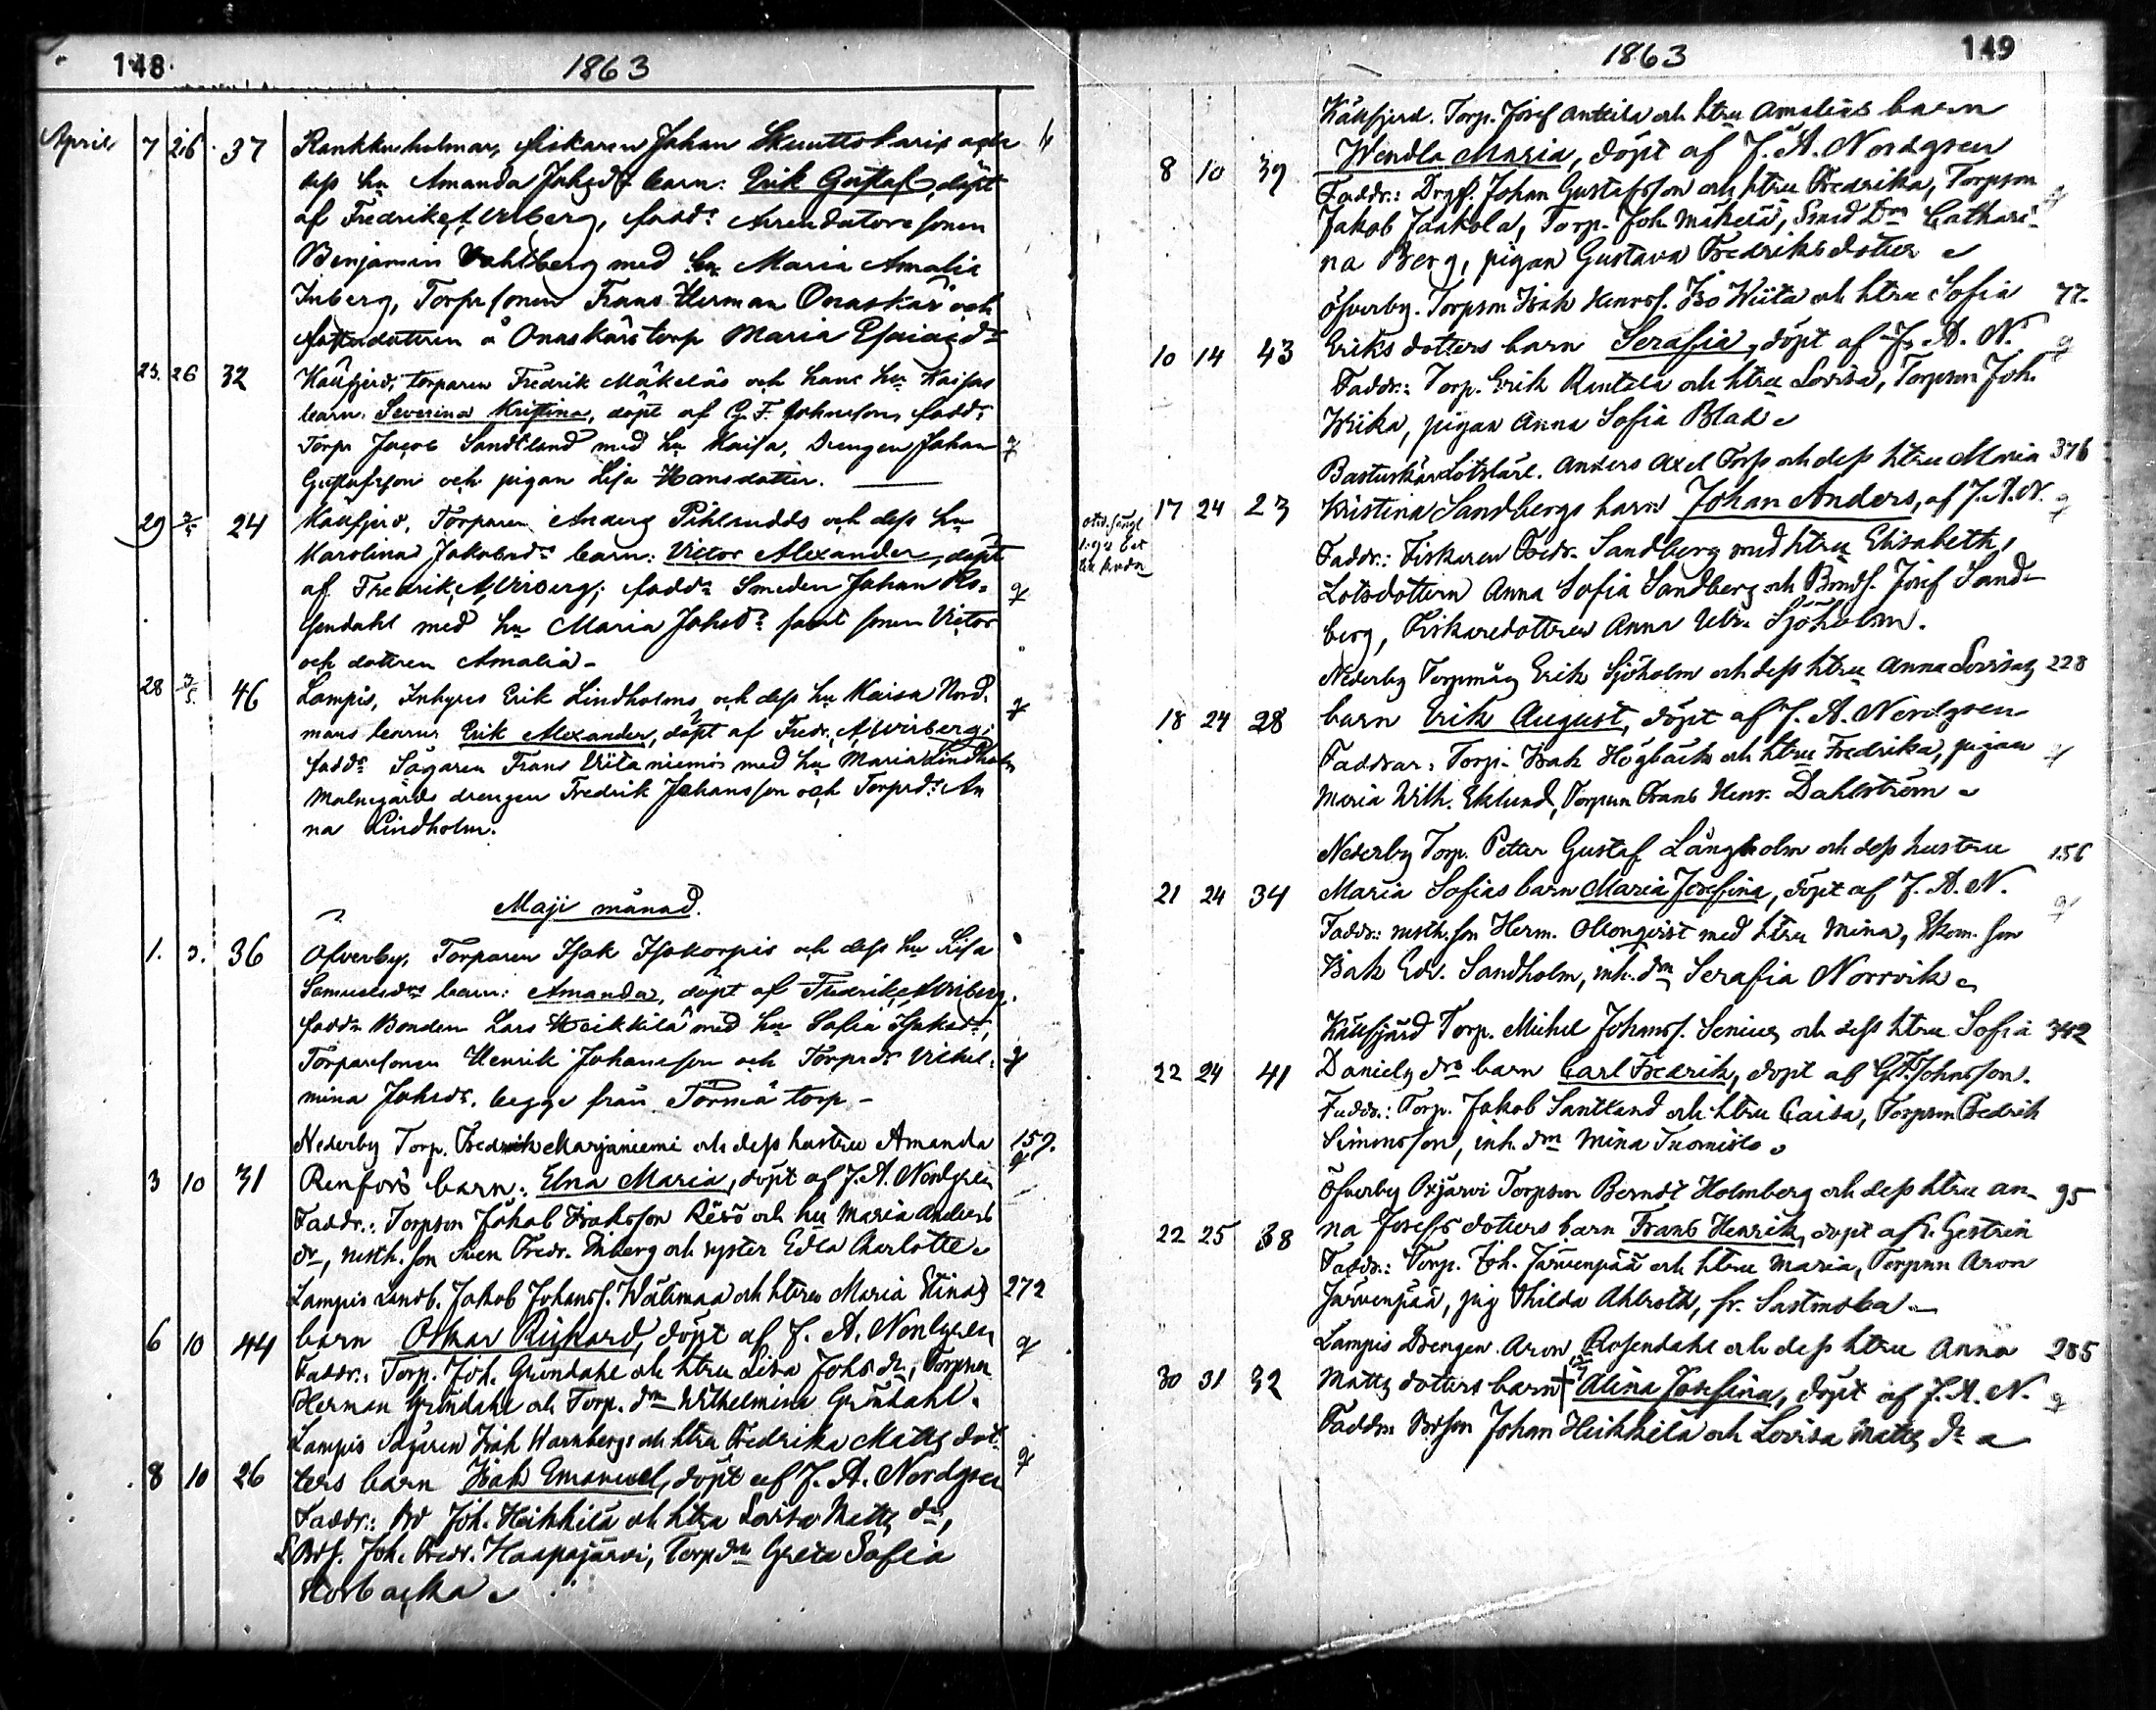 148
1863
April 7 26 37 Rankkuholmar, fiskaren Johan Skuttobaris och
dess hu Amanda Johsdr barn: Erik Gustaf, döpt
af Fredrik A. Wiberg, fadd: Arrendatoressonen
Benjamin Vahlberg med hu Maria Amalia
Inberg, Torpsonen Frans Herman Onaskär och
dottren å Onaskärs torp Maria
23. 26 32 Kåufjerd, torparen Fredrik Mäkeläs och hans hu Kaisas
barn: Severina Kristina, döpt af G. F. Johnsson, fadd:
Torp Jacob Sandtland med hu Kaisa, Drengen Johan
Gustafsson och pigan Lisa Hansdotter.
29 3/5 24 Kåufjerd, Torparen Anders Pihlrudds och dess hu
Karolina Jakobsdr barn: Victor Alexander, döpt
af Fredrik A. Wiberg; fadd: Smeden Johan Ro-
sendahl med hu Maria Johsdr samt sonen Victor
och dottren Amalia -
28 3/5 46 Lampis, Inhyses Erik Lindholms och dess hu Kaisa Nord-
mans barn: Erik Alexander, döpt af Fredr. A. Wiberg;
fadd: Sågaren Frans Viitaniemis med hu Maria Lindholm
Malmgårds drengen Fredrik Johansson och Torpdr: An
na Lindholm.
Maji månad.
1. 3. 36 Öfverby, Torparen Isak Isokorpis och dess hu Lisa
Samuelsdrs barn: Amanda, döpt af Fredrik A. Wiberg,
fadd: Bonden Lars Heikkilä med hu Sofia Isaksdr,
Torparesonen Henrik Johansson och Torpdr Vilhel-
mina Johsdr. begge från Törmä torp -
Nederby Torp. Fredrik Marjaniemi och dess hustru Amanda 157.
3 10 31 Renfors barn: Elna Maria, döpt af J. A. Nordgren
Faddr.: Torpson Jakob Isaksson Risö och hu Maria Anders
dr, nsth. son Sven Fredr. Inberg och syster Edla Charlotte
Lampis Landb. Jakob Johanss. Wälimaa och htru Maria Stinas 272
6 10 44 barn Oskar Richard, döpt af J. A. Nordgren
Faddr.: Torp. Joh. Gröndahl och htru Lisa Johsdr, Torpson
Herman Gröndahl och Torp. drn Wilhelmina Gröndahl.
Lampis Sågaren Isak Warnbergs och htru Fredrika Matts dot-
8 10 26 ters barn Isak Emanuel, döpt af J. A. Nordgren
Faddr.: Bd Joh. Heikkilä och htru Lovisa Matts dr,
Bds. Joh. Fredr. Haapajärvi, Torpdr Greta Sofia
Storbacka
149
1863
Kåufjerd. Torp. Josef Anttila och htru Amalias barn
8 10 39 Wendla Maria, döpt af J. A. Nordgren
Faddr.: Drgs. Johan Gustafsson och htru Fredrika, Torpson
Jakob Jaakola, Torp. Joh. Mäkelä, Smed Drn Cathari-
na Berg, pigan Gustava Fredriksdotter
Öfverby. Torpson Isak Henrss. Iso Wiita och htru Sofia 77.
10 14 43 Eriks dotters barn Serafia, döpt af J. A. N.
Faddr.: Torp. Erik Rintala och htru Lovisa, Torpson Joh.
Wiika, pigan Anna Sofia Blad
Basturskär Lotslärl. Anders Axel Fors och dess htru Maria 376
17 24 23 Kristina Sandbergs barn Johan Anders, af J. A. N.
Faddr.: Fiskaren Fredr. Sandberg med htru Elisabeth,
Lotsdottern Anna Sofia Sandberg och Bonds. Josef Sand-
berg, Fiskaredottren Anna Ulr. Sjöholm.
Nederby Torpmåg Erik Sjöholm och dess htru Anna Lovisas 228
18 24 28 barn Erik August, döpt af J. A. Nordgren
Faddrar: Torp. Isak Högbäck och htru Fredrika, pigan
Maria Wilh. Eklund, Torpson Frans Henr. Dahlström
Nederby Torp. Petter Gustaf Långholm och dess hustru 156
21 24 34 Maria Sofias barn Maria Josefina, döpt af J. A. N.
Faddr.: nsth. son Herm. Mongvist med htru Mina, Skom. son
Isak Edv. Sandholm, inh. drn Serafia Norrvik
Kåufjärd Torp. Michel Johanss. Senius och dess htru Sofia 342
22 24 41 Daniels drs barn Carl Fredrik, döpt af G. F. Johnsson.
Faddr.: Torp. Jakob Santland och htru Caisa, Torpson Fredrik
Simonsson, inh. drn Mina Tuomisto
Öfverby Oxjärvi Torpson Berndt Holmberg och dess htru An- 95
22 25 38 na Josefs dotters barn Frans Henrik, döpt af K. Gestrin
Faddr.: Torp. Joh. Järvenpää och htru Maria, Torpson Aron
Järvenpää, pig Thilda Ahlroth, fr. Sastmola.
Lampis Drengen Aron Rosendahl och dess htru Anna 285
30 31 32 Matts dotters barn † Alina Josefina, döpt af J. A. N.
Faddr: Bdson Johan Heikkilä och Lovisa Matts dr